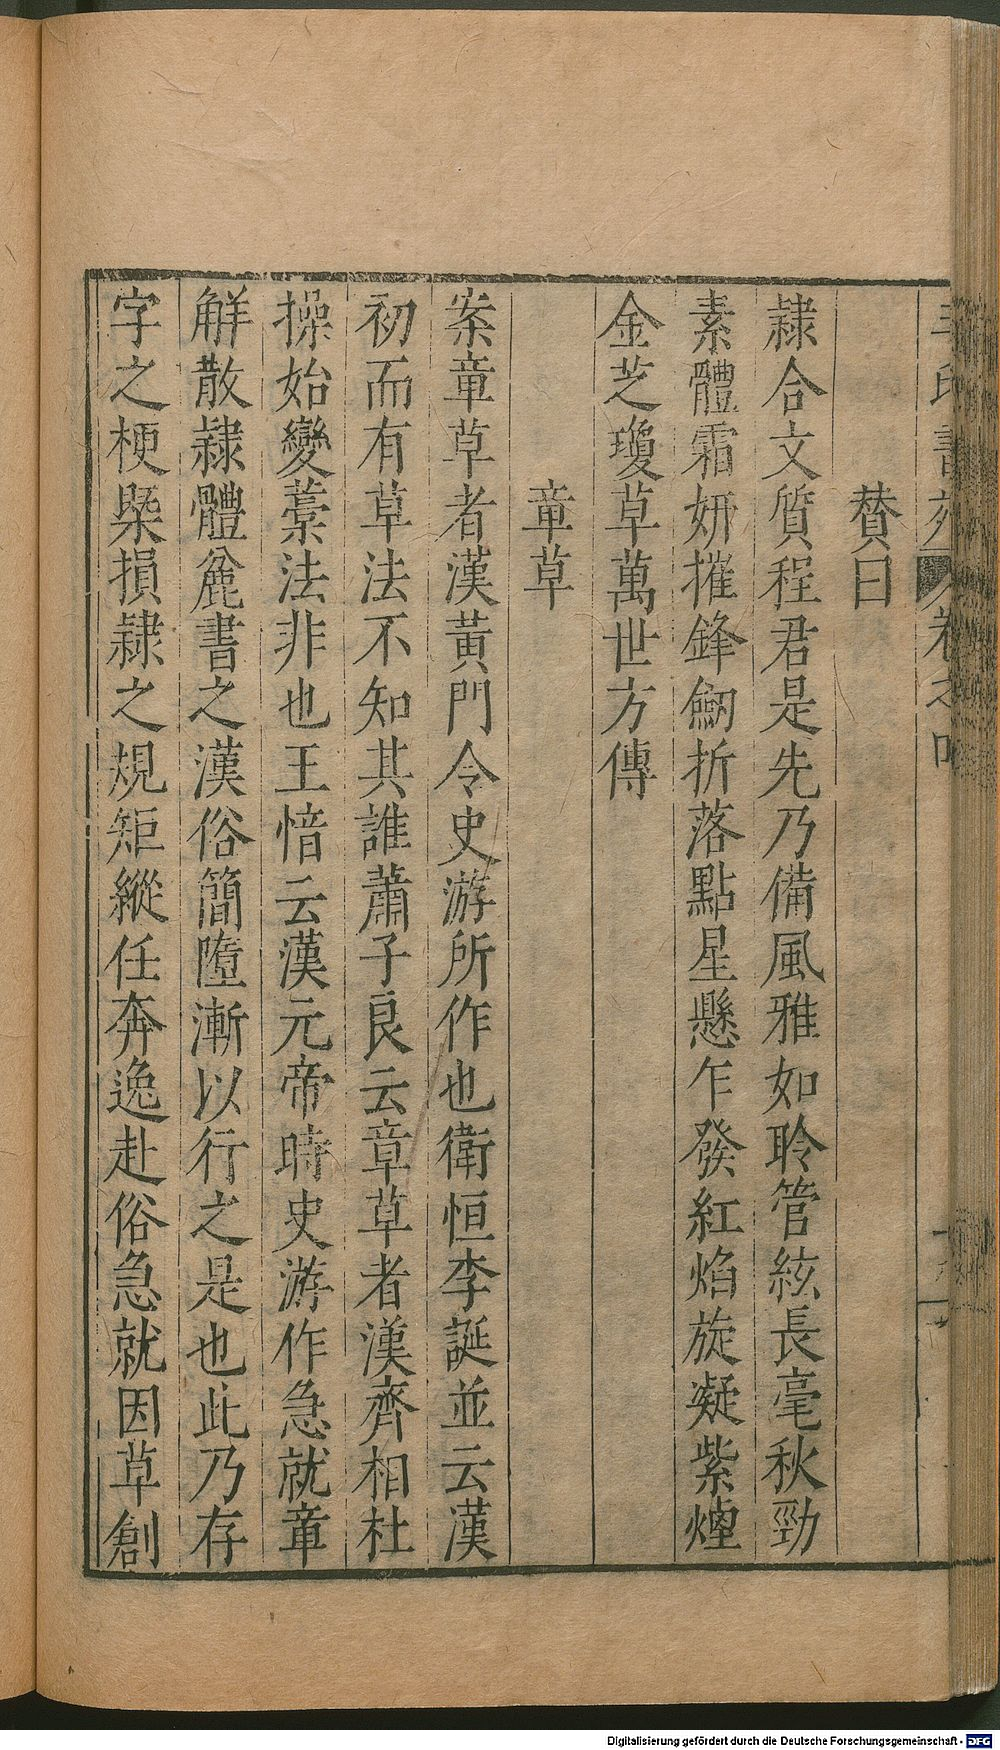 王氏書苑 卷之
贊曰
隸合文質程君是先乃備風雅如聆管絃長毫秋勁
素體霜妍摧鋒劒折落點星懸乍發紅焰旋凝紫煙
金芝瓊草萬世方傳
章草
案章草者漢黃門令史游所作也衛恒李誕並云漢
初而有草法不知其誰蕭子良云章草者漢齊相杜
操始變藁法非也王愔云漢元帝時史游作急就章
觧散隸體麄書之漢俗簡墮漸以行之是也此乃存
字之梗槩損隸之規矩縱任奔逸赴俗急就因草創
Digitalisierung gefördert durch die Deutsche Forschungsgemeinschaft - DFG